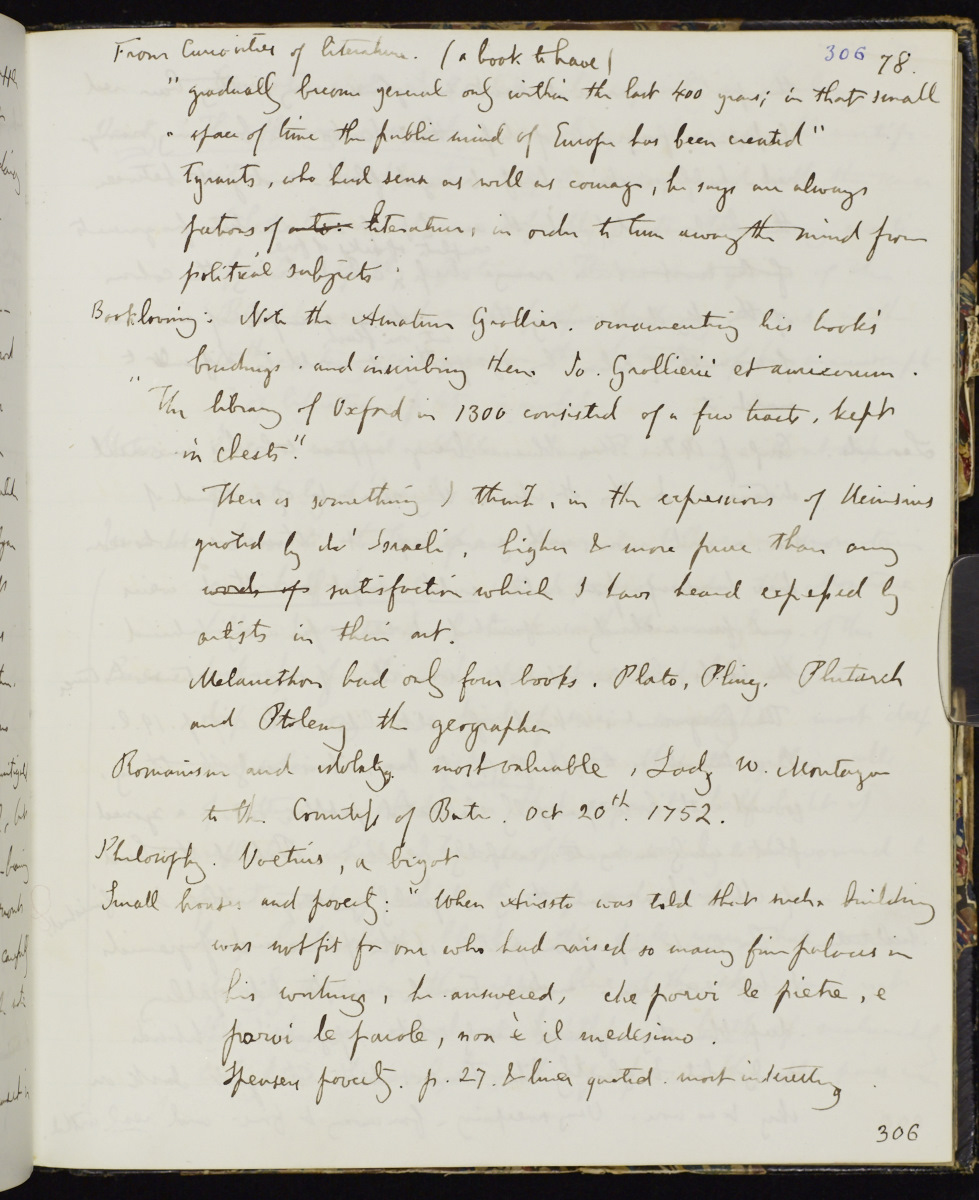 From Curiosities of literature. (a book to have) 306 78.
"gradually become general only within the last 400 years; in that small
" space of time the public mind of Europe has been created"
Tyrants, who had sense as well as courage, he says are always
patrons of arts: literature; in order to turn away the mind from
political subjects.
Bookloving: Note the Amateur Grollier. ornamenting his books'
bindings. and inscribing them Jo. Grollierii et amicorum.
"The library of Oxford in 1300 consisted of a few tracts, kept
in chests".
There is something I think, in the expressions of Heinsius
quoted by de' Israeli, higher & more pure than any
words of satisfaction which I have heard expressed by
artists in their art.
Melancthon had only four books. Plato, Pliny. Plutarch
and Ptolemy the geographer
Romanism and idolatry. most valuable, Lady W. Montague
to the. Countess of Bute. Oct 20th. 1752.
Philosophy. Voetius, a bigot
Small houses and poverty: "When Ariosto was told that such a building
was not fit for one who had raised so many fine palaces in
his writings, he answered, che porvi le pietre, e
porvi le parole, non è il medesimo.
Spensers poverty. p. 27. & lines quoted. most interesting.
306